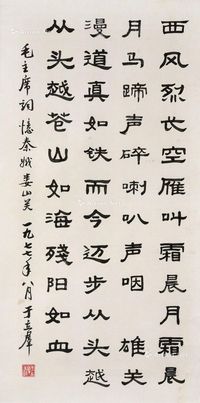 西风烈长空雁叫霜晨月霜晨
月马蹄声碎喇叭声咽 雄关
漫道真如铁而今迈步从头越
从头越苍山如海殘阳如血
毛主席词憶秦娥娄山关 一九七七年八月 于立群